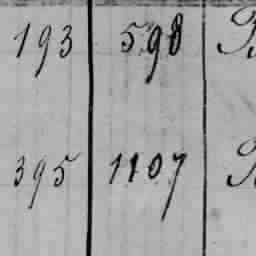 193 598
395 1107